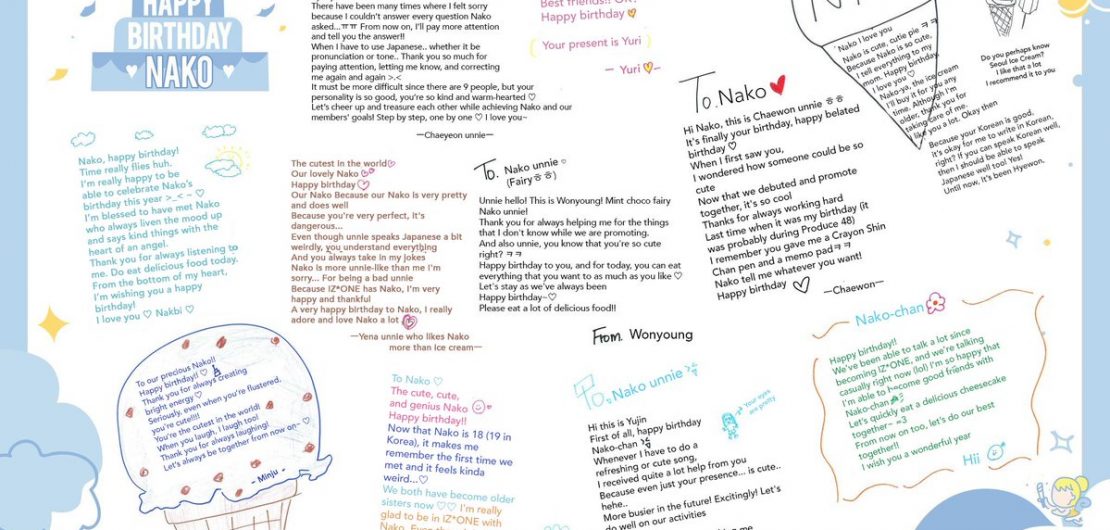 HAPPY
BIRTHDAY
NAKO
There have been many times where I felt sorry
because I couldn't answer every question Nako
asked...ㅠㅠ From now on, I'll pay more attention
and tell you the answer!!
When I have to use Japanese.. whether it be
pronunciation or tone.. Thank you so much for
paying attention, letting me know, and correcting
me again and again >.<
It must be more difficult since there are 9 people, but your
personality is so good, you're so kind and warm-hearted ♡
Let's cheer up and treasure each other while achieving Nako and our
members' goals! Step by step, one by one ♡ I love you~
—Chaeyeon unnie—
Happy birthday
Your present is Yuri
— Yuri —
To. Nako
Hi Nako, this is Chaewon unnie ㅎㅎ
It's finally your birthday, happy belated
birthday ♡
When I first saw you,
I wondered how someone could be so
cute
Now that we debuted and promote
together, it's so cool
Thanks for always working hard
Last time when it was my birthday (it
was probably during Produce 48)
I remember you gave me a Crayon Shin
Chan pen and a memo padㅋㅋ
Nako tell me whatever you want!
Happy birthday ♡
—Chaewon—
Nako I love you
Nako is cute, cutie pie ㅋㅋ
Because Nako is so cute,
I tell everything to my
mom. Happy birthday
I love you ♡
Nako-ya, the ice cream
I'll buy it for you any
time. Although I'm
older, thank you for
taking care of me.
I like you a lot. Okay then
Because your Korean is good,
it's okay for me to write in Korean,
right? If you can speak Korean well,
then I should be able to speak
Japanese well too! Yes!
Until now, it's been Hyewon.
Do you perhaps know
Seoul Ice Cream?
I like that a lot
I recommend it to you
Nako, happy birthday!
Time really flies huh.
I'm really happy to be
able to celebrate Nako's
birthday this year >_< ~ ♡
I'm blessed to have met Nako
who always liven the mood up
and says kind things with the
heart of an angel.
Thank you for always listening to
me. Do eat delicious food today.
From the bottom of my heart,
I'm wishing you a happy
birthday!
I love you ♡ Nakbi ♡
The cutest in the world
Our lovely Nako
Happy birthday
Our Nako Because our Nako is very pretty
and does well
Because you're very perfect, it's
dangerous...
Even though unnie speaks Japanese a bit
weirdly, you understand everything
And you always take in my jokes
Nako is more unnie-like than me I'm
sorry... For being a bad unnie
Because IZ*ONE has Nako, I'm very
happy and thankful
A very happy birthday to Nako, I really
adore and love Nako a lot
—Yena unnie who likes Nako
more than Ice cream—
To. Nako unnie ♡
(Fairyㅎㅎ)
Unnie hello! This is Wonyoung! Mint choco fairy
Nako unnie!
Thank you for always helping me for the things
that I don't know while we are promoting.
And also unnie, you know that you're so cute
right? ㅋㅋ
Happy birthday to you, and for today, you can eat
everything that you want to as much as you like ♡
Let's stay as we've always been
Happy birthday~♡
Please eat a lot of delicious food!!
From. Wonyoung
To our precious Nako!!
Happy birthday!! ♡
Thank you for always creating
bright energy ♡
Seriously, even when you're flustered,
you're cute!!!!
You're the cutest in the world!
When you laugh, I laugh too!
Thank you for always laughing!
Let's always be together from now on~ ♡
- Minju -
To Nako ♡
The cute, cute,
and genius Nako
Happy Birthday!!
Now that Nako is 18 (19 in
Korea), it makes me
remember the first time we
met and it feels kinda
weird...♡
We both have become older
sisters now ♡♡ I'm really
glad to be in IZ*ONE with
To. Nako unnie
Your eyes
are pretty
Hi this is Yujin
First of all, happy birthday
Nako-chan
Whenever I have to do a
refreshing or cute song,
I received quite a lot help from you
Because even just your presence... is cute..
hehe..
More busier in the future! Excitingly! Let's
do well on our activities
Nako-chan
Happy birthday!!
We've been able to talk a lot since
becoming IZ*ONE, and we're talking
casually right now (lol) I'm so happy that
I'm able to become good friends with
Nako-chan
Let's quickly eat a delicious cheesecake
together~ =3
From now on too, let's do our best
together!!
I wish you a wonderful year
Hii